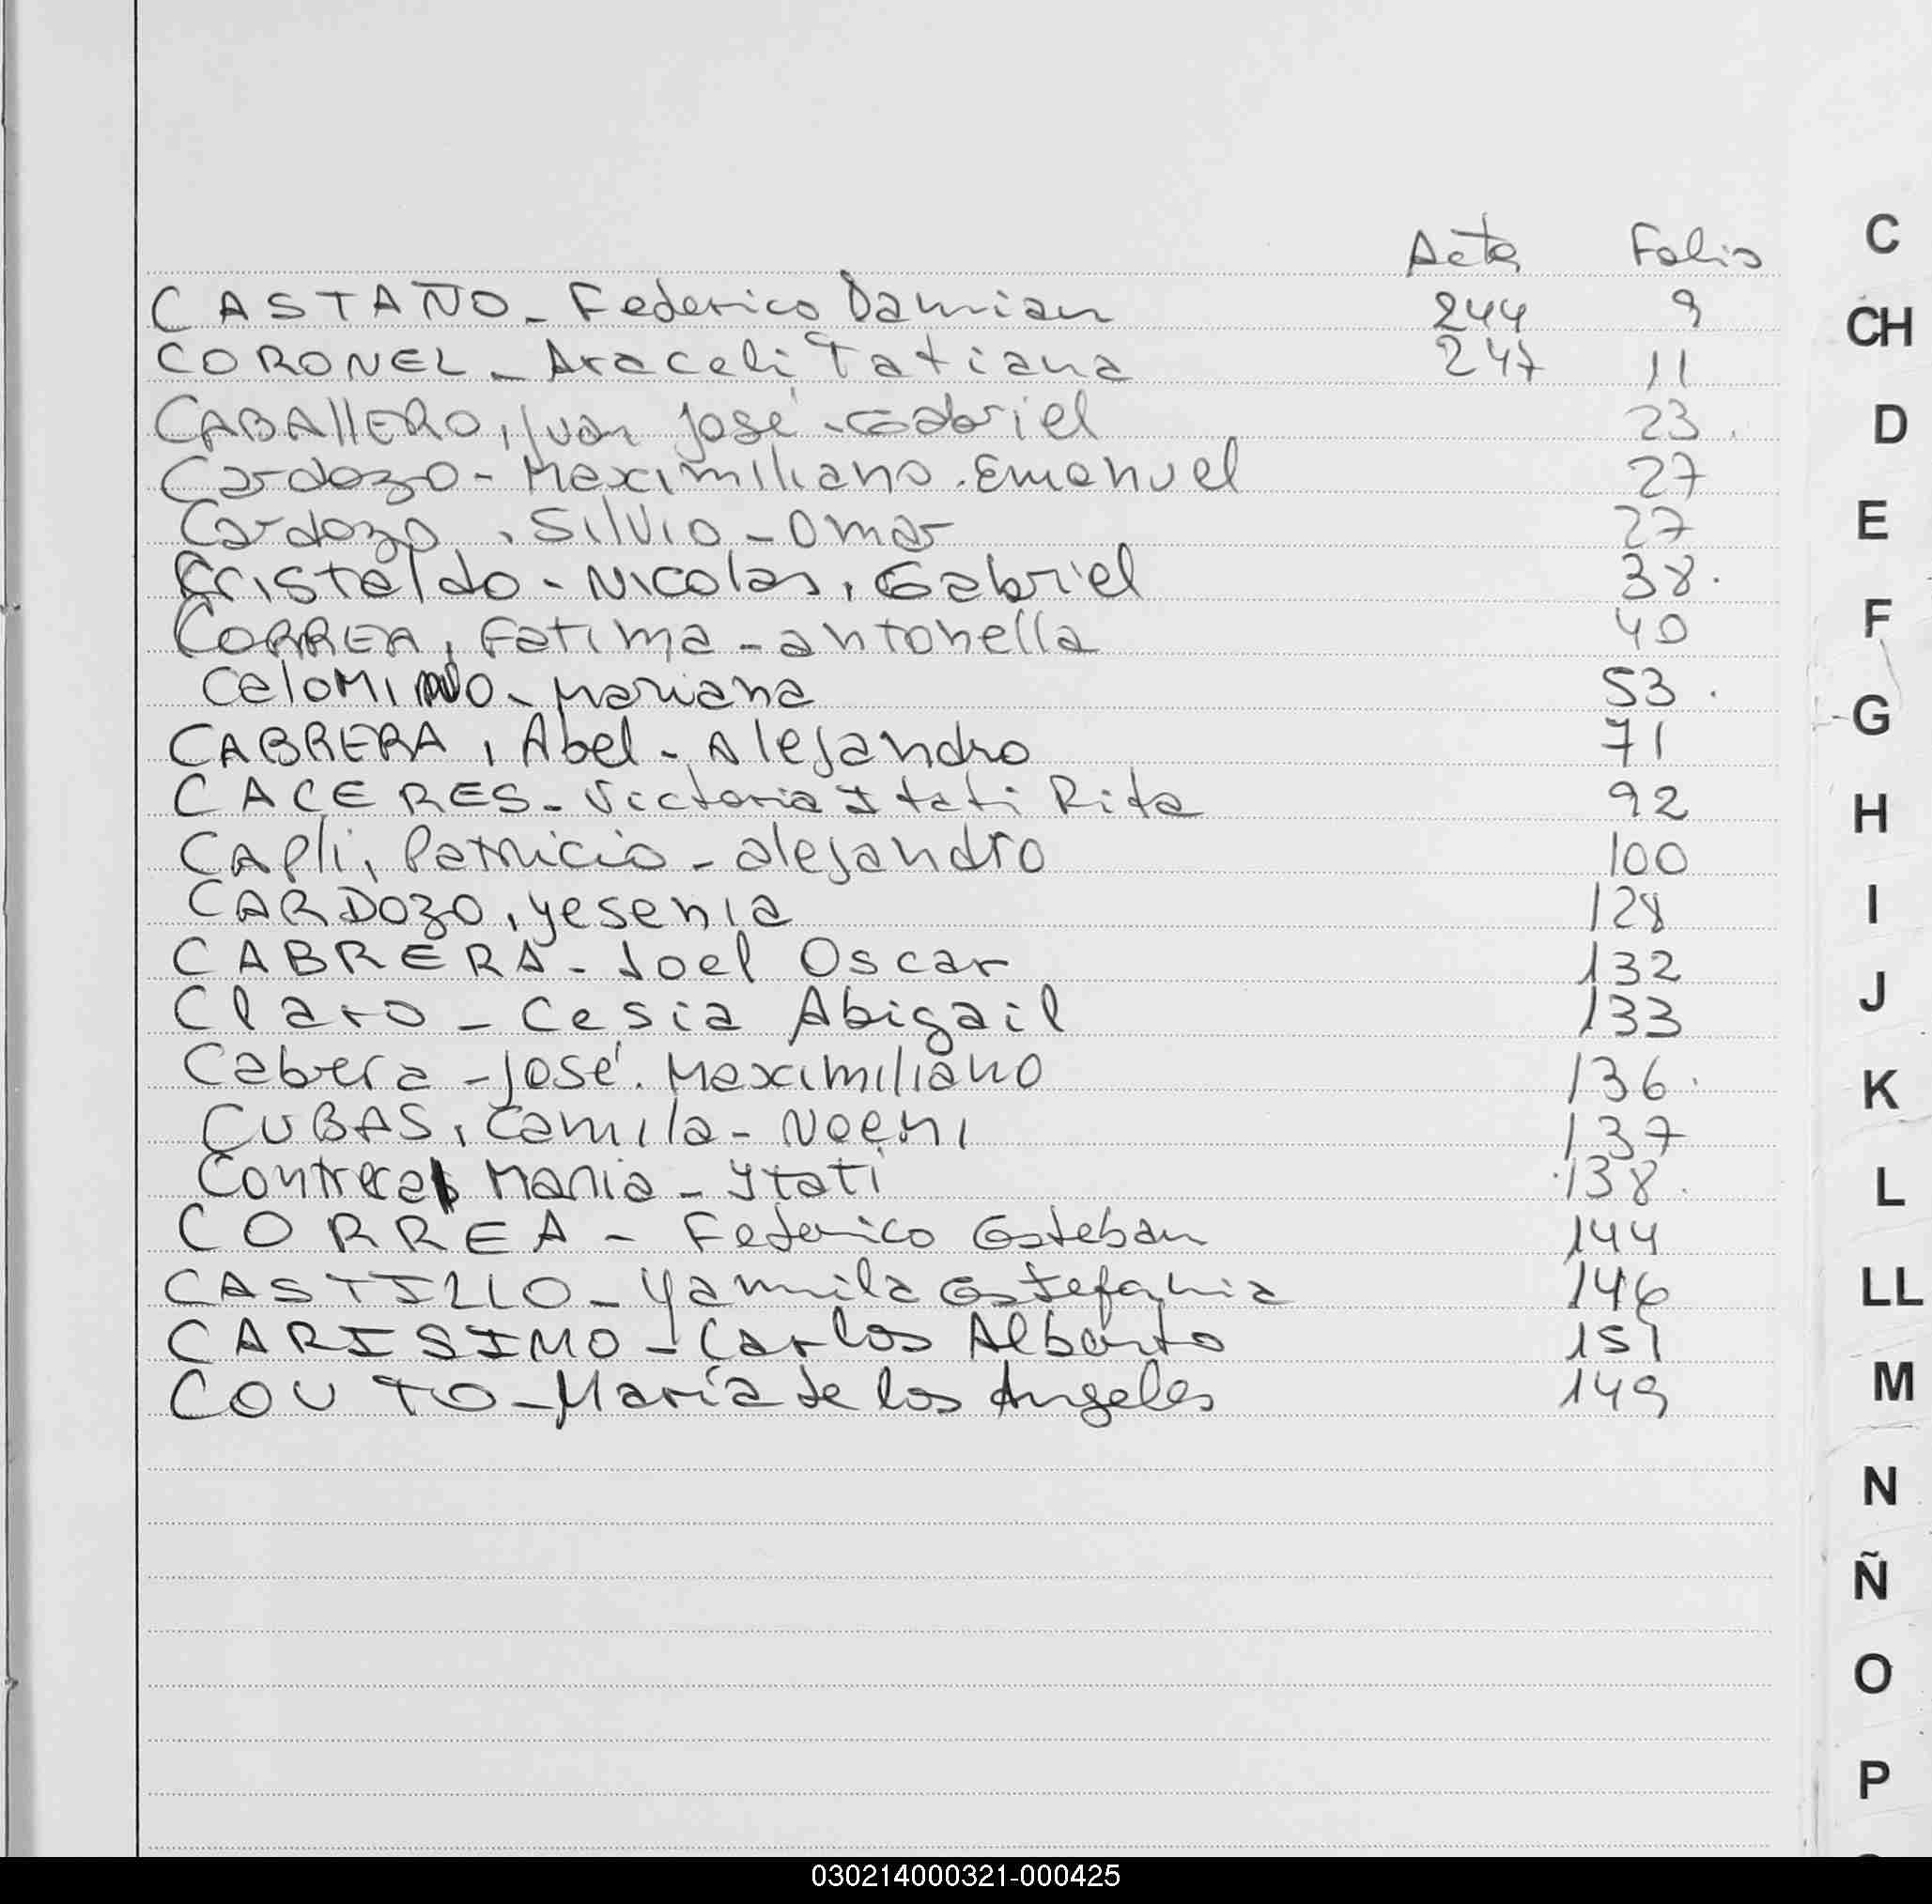 Acta Folio
CASTAÑO - Federico Damian 244 9
CORONEL - Araceli Tatiana 247 11
CABAllERO, Ivan José - Gabriel 23.
Cardozo - Maximiliano. Emanuel 27
Cardozo, Silvio - Omar 27
Cristaldo - Nicolas, Gabriel 38.
CORREA, Fatima - antonella 40
CeloMINO - Mariana 53.
CABRERA, Abel - Alejandro 71
CACERES - Victoria Itati Rita 92
CAPli, Patricio - alejandro 100
CARDOzo, yesenia 128
CABRERA - Joel Oscar 132
Claro - Cesia Abigail 133
Cabera - José. Maximiliano 136.
CUBAS, Camila - Noemi 137
Contreras Maria - Ytati 138.
CORREA - Federico Esteban 144
CASTILLO - Yamila Estefania 146
CARISIMO - Carlos Alberto 151
COUTO - María de los Angeles 149
C
CH
D
E
F
G
H
I
J
K
L
LL
M
N
Ñ
O
P
030214000321-000425